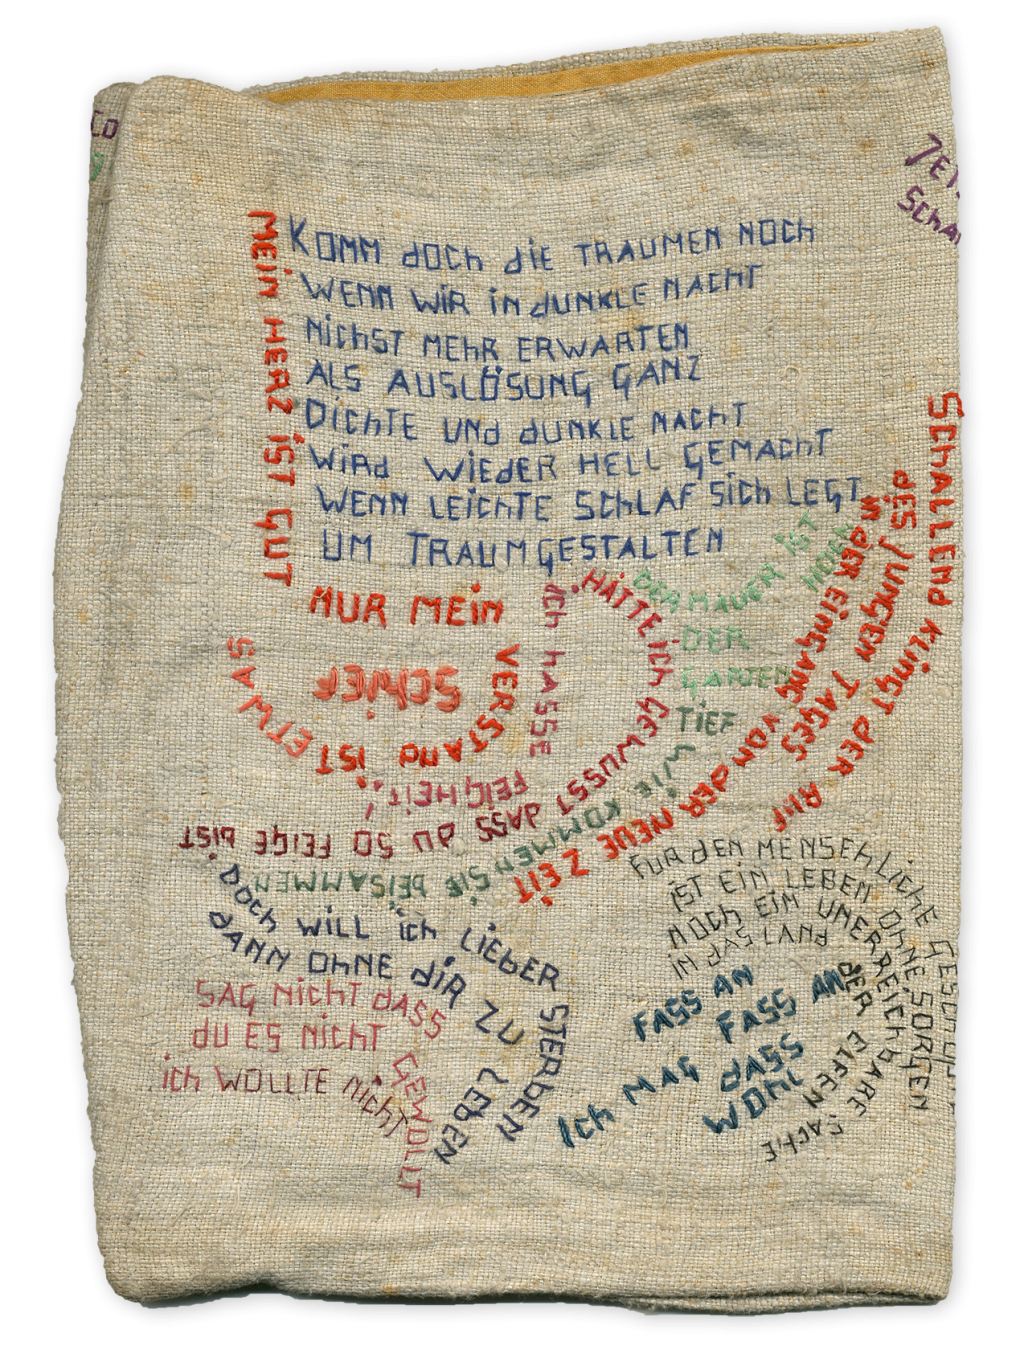 CO
JET
SCHA
MEIN HERZ IST GUT
KOMM dOCh diE TRAUMEN NOCH
WENN WIR iN dUNKLE NACHT
NiChST MEhR ERWARTEN
ALS AUSLÖSUNG GANZ
DiChTE UNd dUNKLE NAChT
WiRd WIEdER HELL GEMAChT
WENN LEiChTE SChLAF SiCh LEGT
UM TRAUMGESTALTEN
NUR MEiN
VERSTANd iST ETWAS
SChiEF
iCh hASSE
FEiGHEiT!
HÄTTE iCh GEWUSST dASS dU SO FEiGE BiST
DER MAUER IST
HOCH
DER
GARTEN
TIEF
WiE KOMMEN SiE BEiSAMMEN
SChALLENd KLiNGT dER RUF
dES JUNGEN TAGES
iN dER EiNGANG VON dER NEUE ZEiT
DOCh WiLL iCh LiEbER STERbEN
dANN OhNE diR ZU LEbEN
SAG NiChT dASS
dU ES NiChT GEWOLLT
iCh WOLLTE NiChT
FÜR dEN MENSChLiChE
iST EiN LEBEN OHNE SORGEN
NOCh EiN UNERREiChBARE SAChE
iN dAS LANd dER ELFEN
FASS AN
FASS AN
iCh MAG dASS
WOhL